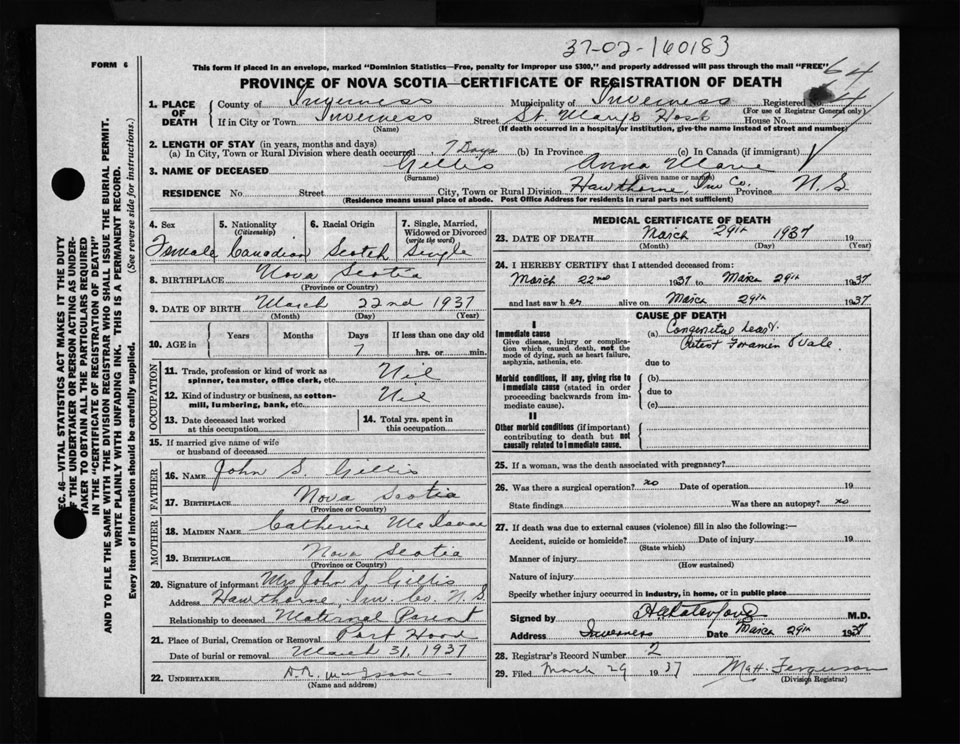 37-02-160183
FORM 6
This form if placed in an envelope, marked "Dominion Statistics—Free, penalty for improper use $300," and properly addressed will pass through the mail "FREE"
64
PROVINCE OF NOVA SCOTIA—CERTIFICATE OF REGISTRATION OF DEATH
1. PLACE OF DEATH { County of Inverness Municipality of Inverness Registered No.
(For use of Registrar General only)
If in City or Town Inverness Street St. Mary's Hosp House No.
(Name) (If death occurred in a hospital or institution, give the name instead of street and number)
2. LENGTH OF STAY (in years, months and days)
(a) In City, Town or Rural Division where death occurred 7 Days (b) In Province (c) In Canada (if immigrant)
3. NAME OF DECEASED Gillis Anna Marie
(Surname) (Given name or names)
RESIDENCE No Street City, Town or Rural Division Hawthorne, Inv Co. Province N.S
(Residence means usual place of abode. Post Office Address for residents in rural parts not sufficient)
4. Sex 5. Nationality (Citizenship) 6. Racial Origin 7. Single, Married, Widowed or Divorced (write the word)
Female Canadian Scotch Single
8. BIRTHPLACE Nova Scotia
(Province or Country)
9. DATE OF BIRTH March 22nd 1937
(Month) (Day) (Year)
10. AGE in { Years Months Days If less than one day old
7 hrs. or min.
OCCUPATION
11. Trade, profession or kind of work as spinner, teamster, office clerk, etc. Nil
12. Kind of industry or business, as cotton-mill, lumbering, bank, etc. Nil
13. Date deceased last worked at this occupation
14. Total yrs. spent in this occupation
15. If married give name of wife or husband of deceased
FATHER
16. Name John S. Gillis
17. Birthplace Nova Scotia
(Province or Country)
MOTHER
18. Maiden Name Catherine
19. Birthplace Nova Scotia
(Province or Country)
20. Signature of informant Mrs John S. Gillis
Address Hawthorne, Inv. Co. N.S
Relationship to deceased Maternal Parent
21. Place of Burial, Cremation or Removal Port Hood
Date of burial or removal March 31, 1937
22. UNDERTAKER
(Name and address)
MEDICAL CERTIFICATE OF DEATH
23. DATE OF DEATH March 29th 1937 19
(Month) (Day) (Year)
24. I HEREBY CERTIFY that I attended deceased from:
March 22nd 1937 to March 29th 1937
and last saw her alive on March 29th 1937
CAUSE OF DEATH
I
Immediate cause
Give disease, injury or complication which caused death, not the mode of dying, such as heart failure, asphyxia, asthenia, etc.
(a) Congenital heart.
Patent Foramen Ovale.
due to
Morbid conditions, if any, giving rise to immediate cause (stated in order proceeding backwards from immediate cause).
(b)
due to
(c)
II
Other morbid conditions (if important) contributing to death but not causally related to immediate cause.
25. If a woman, was the death associated with pregnancy?
26. Was there a surgical operation? no Date of operation 19
State findings Was there an autopsy? no
27. If death was due to external causes (violence) fill in also the following:—
Accident, suicide or homicide? Date of injury 19
(State which)
Manner of injury
(How sustained)
Nature of injury
Specify whether injury occurred in industry, in home, or in public place
Signed by M.D.
Address Inverness Date March 29th 1937
28. Registrar's Record Number 2
29. Filed March 29 1937 Matt. Ferguson
(Division Registrar)
EC. 46—VITAL STATISTICS ACT MAKES IT THE DUTY
OF THE UNDERTAKER OR PERSON ACTING AS UNDER-
TAKER TO OBTAIN ALL THE PARTICULARS REQUIRED
IN THE "CERTIFICATE OF REGISTRATION OF DEATH"
AND TO FILE THE SAME WITH THE DIVISION REGISTRAR WHO SHALL ISSUE THE BURIAL PERMIT.
WRITE PLAINLY WITH UNFADING INK. THIS IS A PERMANENT RECORD.
Every item of information should be carefully supplied. (See reverse side for instructions.)